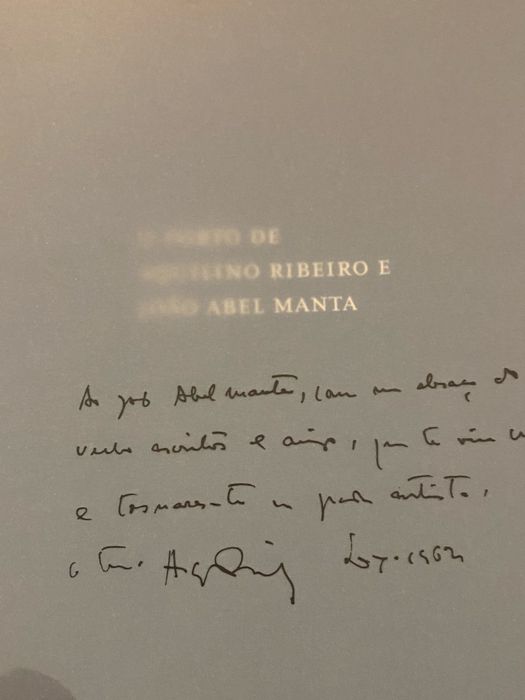 O PORTO DE
AQUILINO RIBEIRO E
JOÃO ABEL MANTA
Ao João Abel Manta, com um abraço do
velho escritor e amigo, que te viu
e tornares-te um grande artista,
o teu Aquilino Lx. 1962